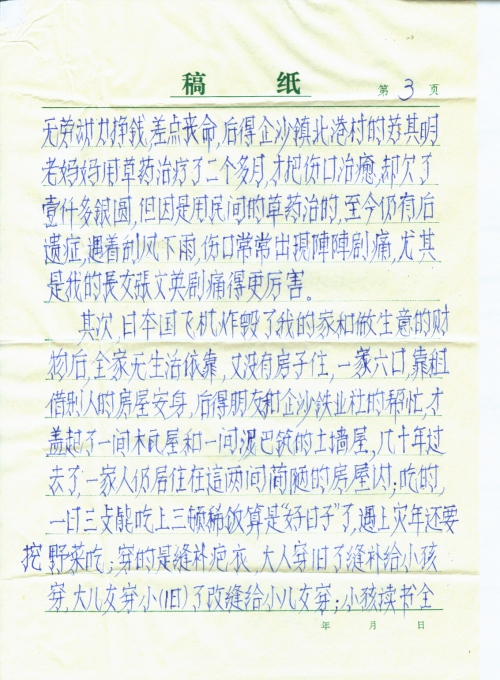 稿 纸
第 3 页
无劳动力挣钱,差点丧命,后得企沙鎮北港村的苏其明
老妈妈用草药治疗了二个多月,才把伤口治癒,却欠了
壹仟多銀圆,但因是用民间的草药治的,至今仍有后
遗症,遇着刮风下雨,伤口常常出現陣陣剧痛,尤其
是我的長女張文英剧痛得更厉害。
其次,日本国飞机炸毁了我的家和做生意的财
物后,全家无生活依靠,又没有房子住,一家六口,靠租
借别人的房屋安身,后得朋友和企沙鉄业社的帮忙,才
盖起了一间木瓦屋和一间泥巴筑的土墙屋,几十年过
去了,一家人仍居住在這两间简陋的房屋内;吃的,
一日三歺能吃上三顿稀饭算是“好日子”了,遇上灾年还要
挖野菜吃;穿的是缝补疤衣,大人穿旧了缝补给小孩
穿,大儿女穿小(旧)了改缝给小儿女穿;小孩读书全
年 月 日